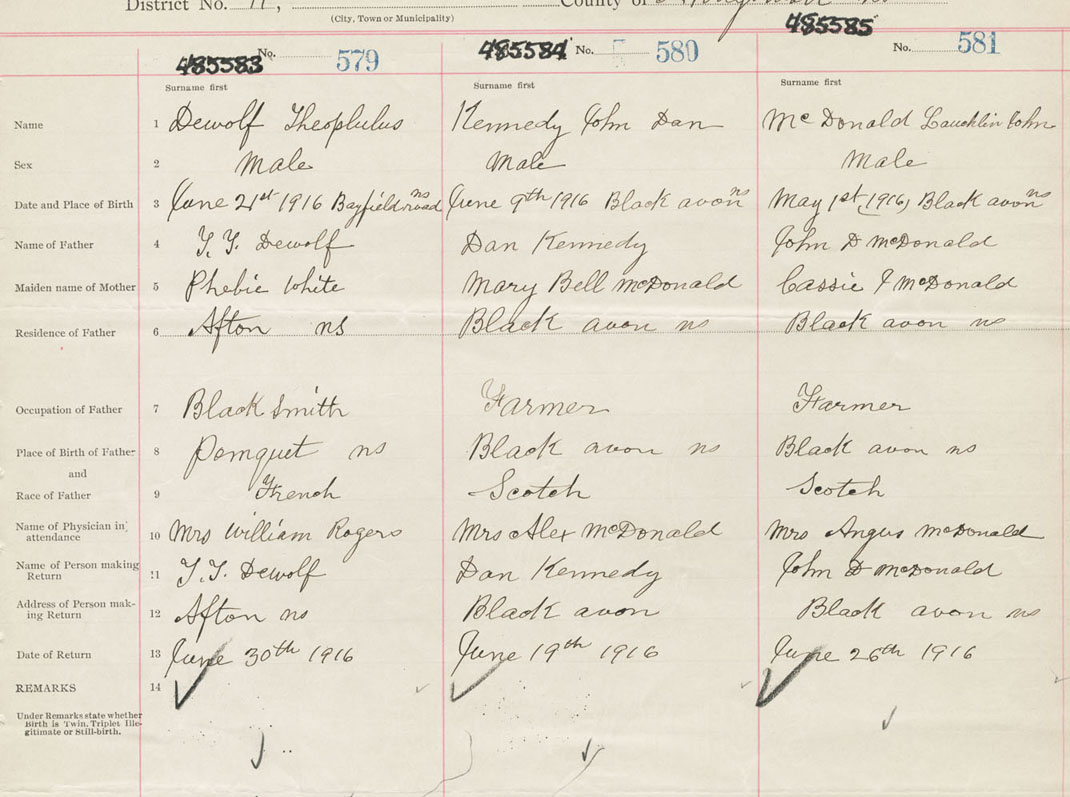 District No. 11, County of
(City, Town or Municipality)
485583 No. 579 485584 No. 580 485585 No. 581
Surname first Surname first Surname first
Name 1 Dewolf Theophulus Kennedy John Dan McDonald Lauchlin John
Sex 2 Male Male Male
Date and Place of Birth 3 June 21st 1916 Bayfield road ns June 9th 1916 Black avon ns May 1st 1916, Black avon ns
Name of Father 4 T. T. Dewolf Dan Kennedy John D McDonald
Maiden name of Mother 5 Phebie White Mary Bell McDonald Cassie J McDonald
Residence of Father 6 Afton ns Black avon ns Black avon ns
Occupation of Father 7 Black Smith Farmer Farmer
Place of Birth of Father 8 Pomquet ns Black avon ns Black avon ns
and
Race of Father 9 French Scotch Scotch
Name of Physician in attendance 10 Mrs William Rogers Mrs Alex McDonald Mrs Angus McDonald
Name of Person making Return 11 T. T. Dewolf Dan Kennedy John D McDonald
Address of Person making Return 12 Afton ns Black avon Black avon ns
Date of Return 13 June 30th 1916 June 19th 1916 June 26th 1916
REMARKS 14
Under Remarks state whether
Birth is Twin, Triplet Ille-
gitimate or Still-birth.